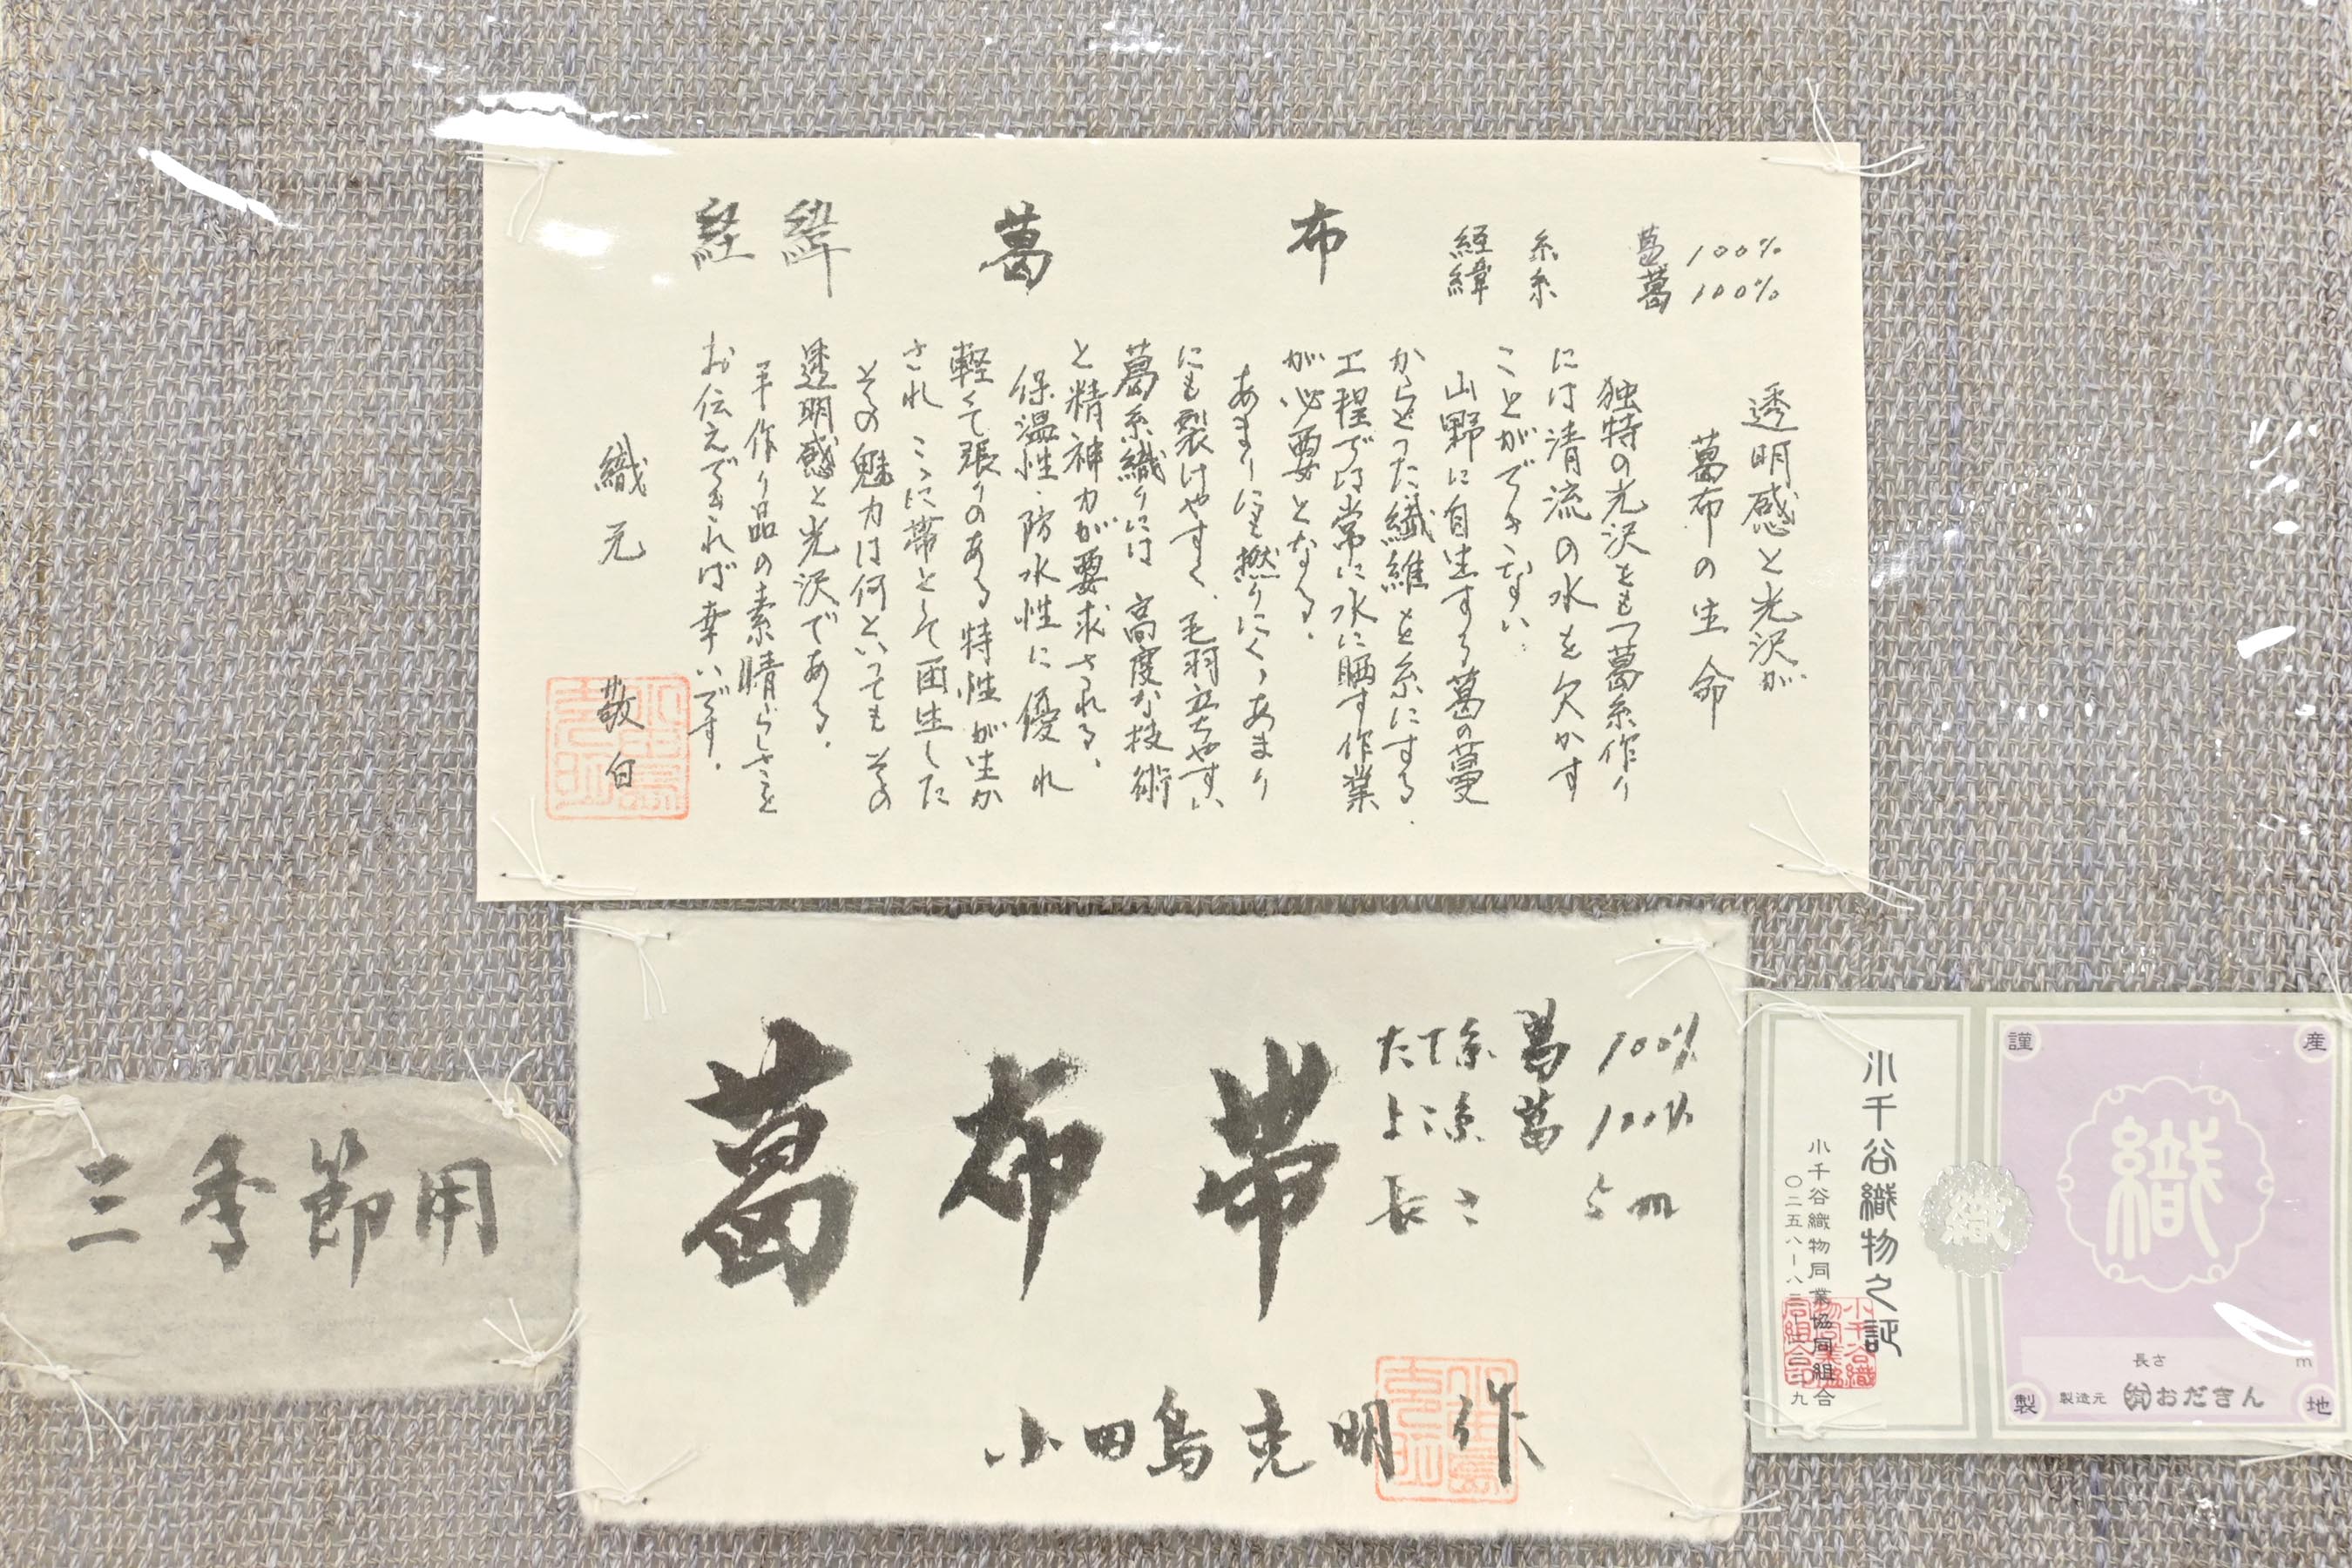 経緯 葛布
経糸 葛 100%
緯糸 葛 100%
透明感と光沢が
葛布の生命
独特の光沢をもつ葛糸作り
には清流の水を欠かす
ことができない.
山野に自生する葛の蔓
からとった繊維を糸にする.
工程では常に水に晒す作業
が必要となる.
あまりにも撚りにくくあまり
にも裂けやすく、毛羽立ちやすい
葛糸織りには 高度な技術
と精神力が要求される.
保温性・防水性に優れ
軽くて張りのある特性が生か
され ここに帯として再生した
その魅力は何といってもその
透明感と光沢である.
手作り品の素晴らしさを
お伝えできれば幸いです.
織元 敬白
三季節用
葛布帯
たて糸 葛 100%
よこ糸 葛 100%
長さ 5m
小田島克明 作
小千谷織物之証
小千谷織物同業協同組合
謹 産
織
織
長さ m
製 製造元 おださん 地